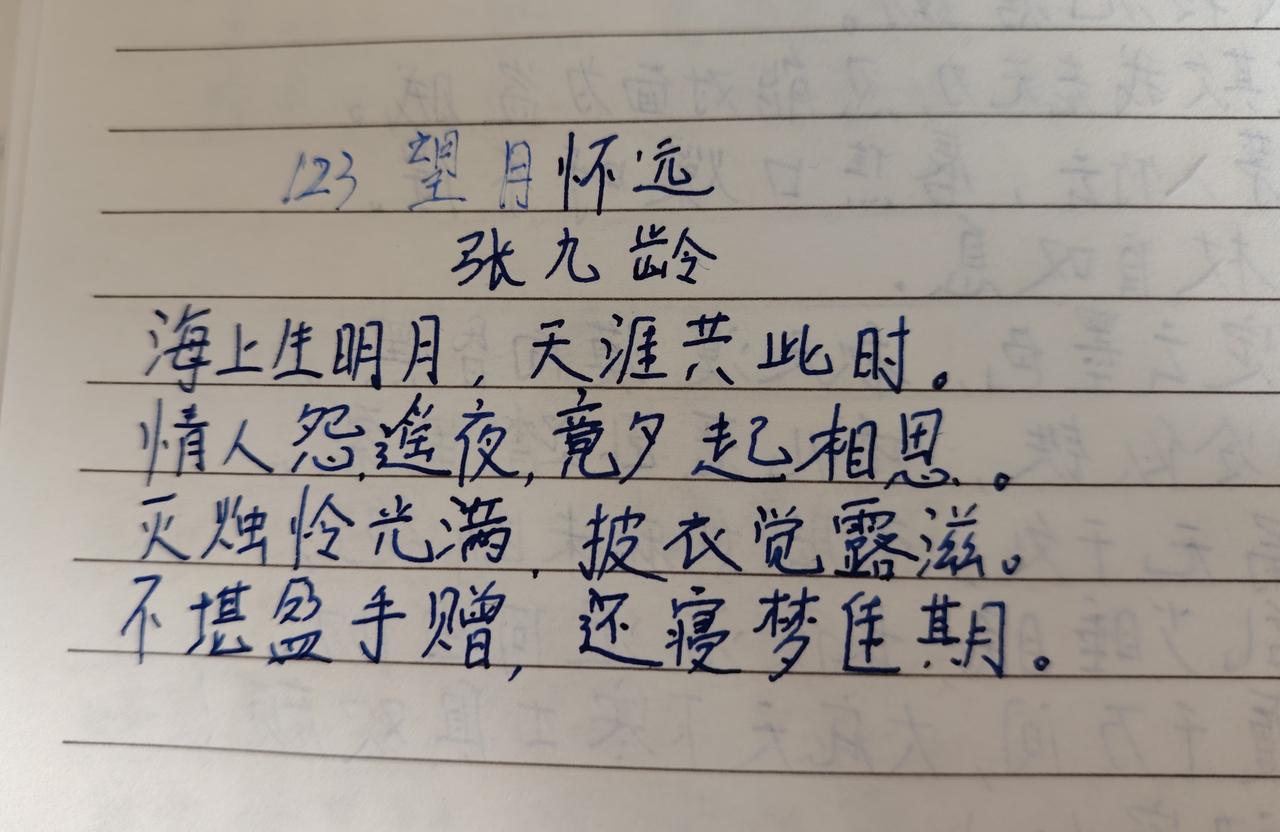 123 望月怀远
张九龄
海上生明月，天涯共此时。
情人怨遥夜，竟夕起相思。
灭烛怜光满，披衣觉露滋。
不堪盈手赠，还寝梦佳期。